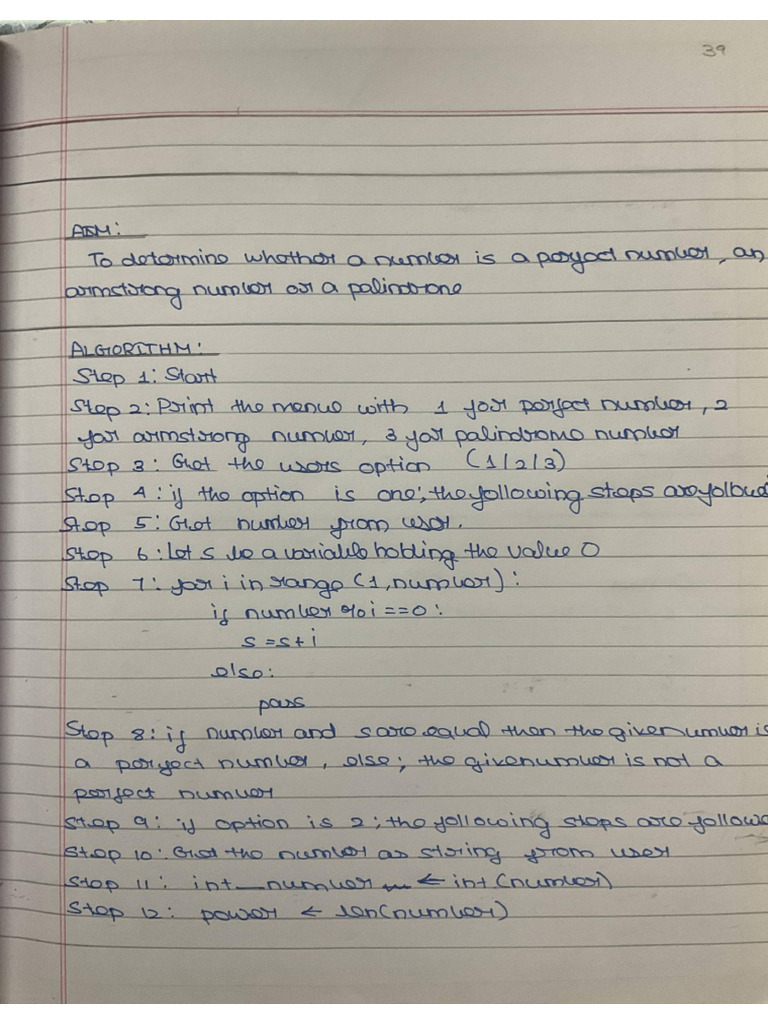 39
AIM:
To determine whether a number is a perfect number, an
armstrong number or a palindrome
ALGORITHM:
Step 1: Start
Step 2: Print the menue with 1 for perfect number, 2
for armstrong number, 3 for palindrome number
Step 3: Get the users option (1/2/3)
Step 4: if the option is one; the following steps are followed
Step 5: Get number from user.
Step 6: Let s be a variable holding the value 0
Step 7: for i in range (1, number):
if number % i == 0:
s = s + i
else:
pass
Step 8: if number and s are equal then the given number is
a perfect number, else; the given number is not a
perfect number
Step 9: if option is 2; the following steps are followe
Step 10: Get the number as string from user
Step 11: int_number ← int (number)
Step 12: power ← len(number)